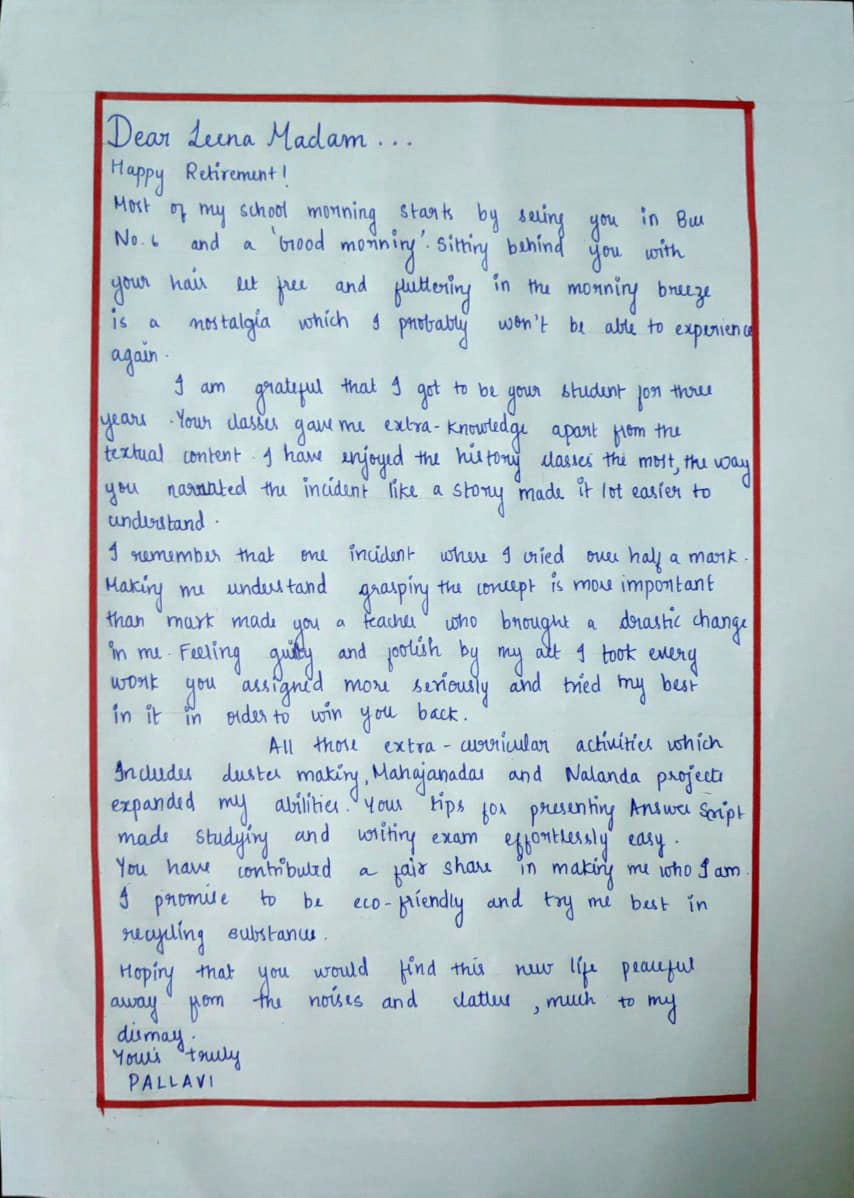 Dear Leena Madam ...
Happy Retirement!
Most of my school morning starts by seeing you in Bus
No. 6 and a 'Good morning'. Sitting behind you with
your hair let free and fluttering in the morning breeze
is a nostalgia which I probably won't be able to experience
again.
I am grateful that I got to be your student for three
years. Your classes gave me extra-knowledge apart from the
textual content. I have enjoyed the history classes the most, the way
you narrated the incident like a story made it lot easier to
understand.
I remember that one incident where I cried over half a mark.
Making me understand grasping the concept is more important
than mark made you a teacher who brought a drastic change
in me. Feeling guilty and foolish by my act I took every
work you assigned more seriously and tried my best
in it in order to win you back.
All those extra-curricular activities which
Includes duster making, Mahajanadas and Nalanda projects
expanded my abilities. Your tips for presenting Answer Script
made studying and writing exam effortlessly easy.
You have contributed a fair share in making me who I am.
I promise to be eco-friendly and try me best in
recycling substances.
Hoping that you would find this new life peaceful
away from the noises and clatters, much to my
dismay.
Yours truly
PALLAVI